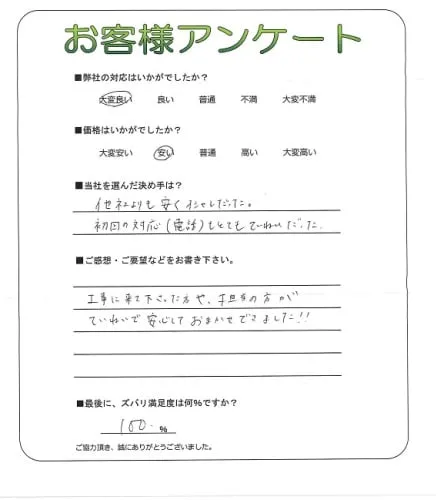 お客様アンケート
■弊社の対応はいかがでしたか?
大変良い 良い 普通 不満 大変不満
■価格はいかがでしたか?
大変安い 安い 普通 高い 大変高い
■当社を選んだ決め手は?
他社よりも安く でした。
初回の対応(電話)もとてもていねいだった。
■ご感想・ご要望などをお書き下さい。
工事に来て下さった方や、担当の方が
ていねいで安心しておまかせできました!!
■最後に、ズバリ満足度は何%ですか?
100. %
ご協力頂き、誠にありがとうございました。